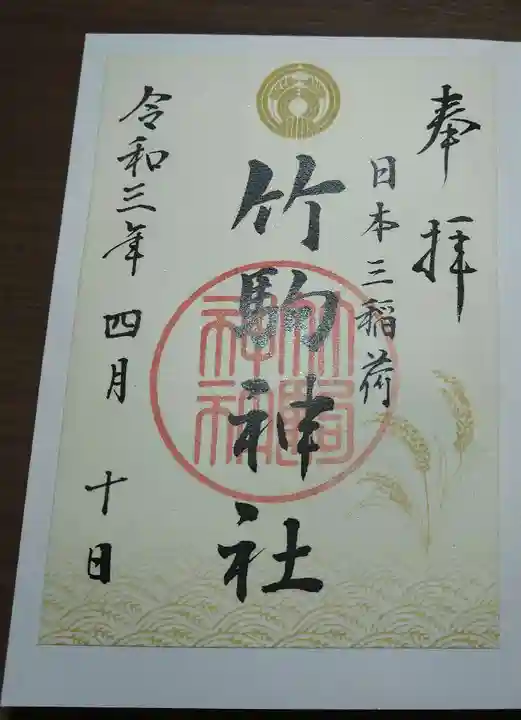 奉拝
日本三稲荷
竹駒神社
竹駒神社
令和三年 四月 十日